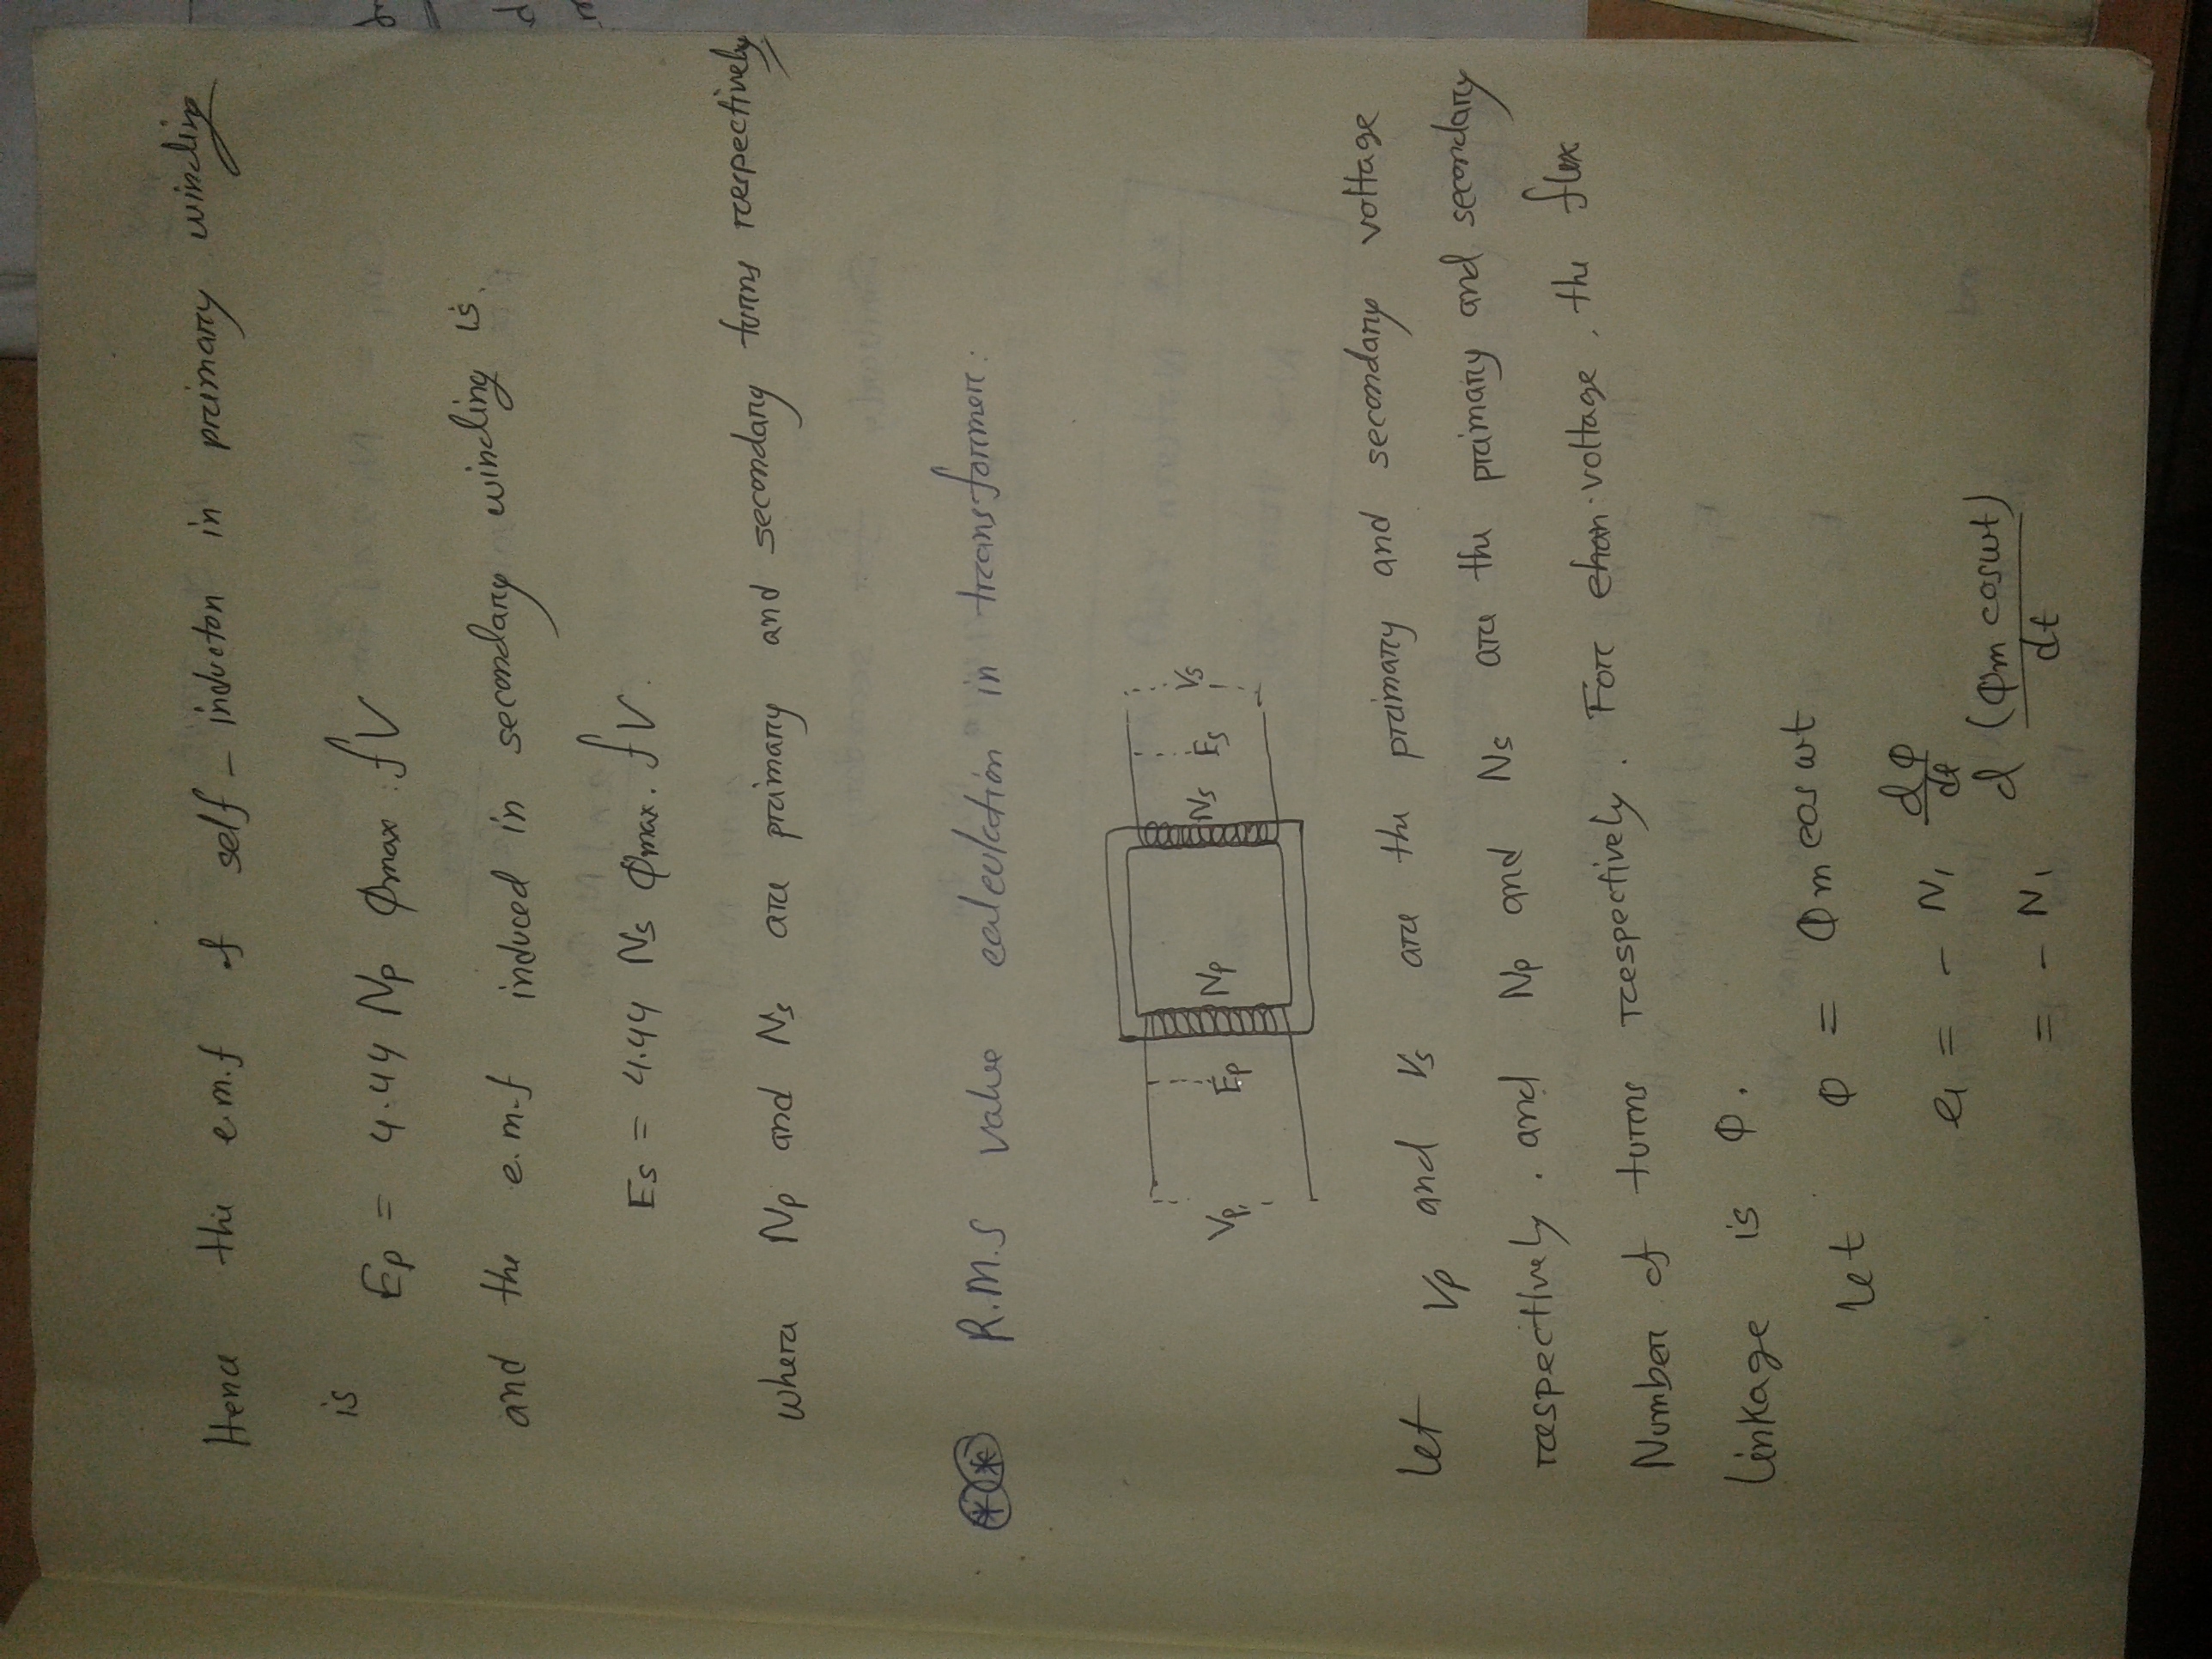 Hence the e.m.f of self - inducton in primary winding
is
Ep = 4.44 Np φmax . fV
and the e.m.f induced in secondary winding is.
Es = 4.44 Ns φmax. fV.
where Np and Ns are primary and secondary turns respectively
** R.M.S value calculation in transformer:
Vp Ep Np Ns Es Vs
Let Vp and Vs are the primary and secondary voltage
respectively. and Np and Ns are the primary and secondary
Number of turns respectively. For chan voltage, the flux
linkage is φ.
let φ = φm cos ωt
e1 = - N1 dφ/dt
= - N1 d (φm cosωt)/dt